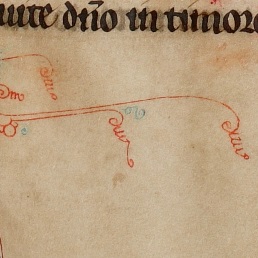 uite dño in timore